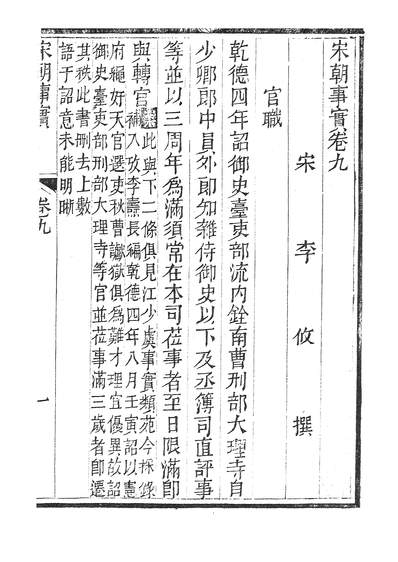 宋朝事實卷九
宋李攸撰
官職
乾德四年詔御史臺吏部流內銓南曹刑部大理寺自
少卿郎中員外郎知雜侍御史以下及丞簿司直評事
等並以三周年為滿須常在本司莅事者至日限滿即
與轉官案此與下二條俱見江少虞事實類苑今採錄
補入攷李燾長編乾德四年八月壬寅詔以憲
府繩奸天官選吏秋曹讞獄俱為難才理宜優異故詔
御史臺吏部刑部大理寺等官並莅事滿三歲者卽遷
其秩此書刪去上數
語于詔意未能明晰
宋朝事實
卷九
一